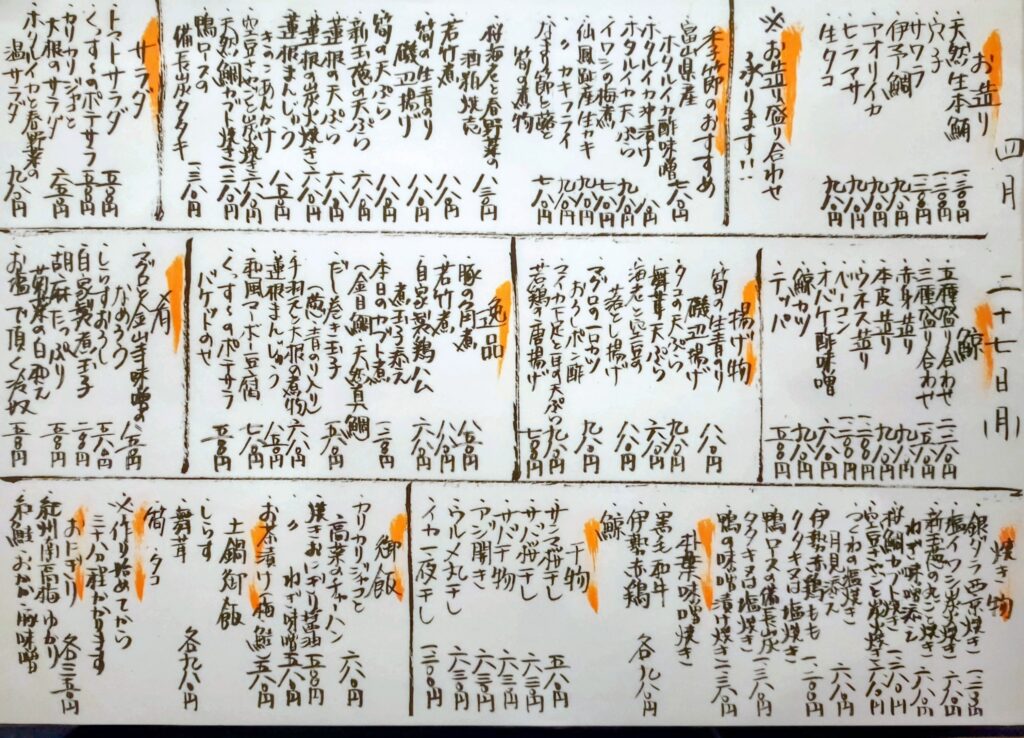 四月二十七日(月)
お造り
・天然生本鮪 一、三〇〇円
・穴子 一、二〇〇円
・サワラ 一、二〇〇円
・伊予鯛 九八〇円
・アオリイカ 九八〇円
・ヒラマサ 九八〇円
・生タコ 九八〇円
※お造り盛り合わせ
承ります!!
のおすすめ
富山県産
・ホタルイカ酢味噌 七八〇円
・ホタルイカ沖漬け
・ホタルイカ天ぷら 九八〇円
・イワシの梅煮 七八〇円
・仙鳳趾産生カキ 九八〇円
・〃 カキフライ 九八〇円
・なまり節と蕗と
筍の煮物 七八〇円
・桜海老と春野菜の
酒粕焼
・若竹煮 八八〇円
・筍の生青のり
磯辺揚げ 八八〇円
・筍の天ぷら 八八〇円
・新玉葱の天ぷら
・蓮根の天ぷら
・蓮根の炭火焼き
・蓮根まんじゅう
きのこあんかけ 八五〇円
・空豆さやごと炭焼き 六八〇円
・天然鯛カブト焼き 一、二八〇円
・鴨ロースの
備長炭タタキ 一、三八〇円
サラダ
・トマトサラダ 五八〇円
・くっすーのポテサラ 五八〇円
・カリカリジャコと
大根のサラダ 六五〇円
・ホタルイカと春野菜の
温サラダ 九八〇円
鯨
・五種盛り合わせ
・三種盛り合わせ
・赤身造り 九八〇円
・本皮造り 九八〇円
・ウネス造り
・ベーコン
・オバケ酢味噌 六八〇円
・鯨カツ 九八〇円
・テッパ 五八〇円
揚げ物
・筍の生青のり
磯辺揚げ 八八〇円
・タコの天ぷら
・舞茸天ぷら 六八〇円
・海老と空豆の
落とし揚げ 八八〇円
・マグロの一口カツ
おろしポン酢 九八〇円
・マイカ下足と豆の天ぷら 九八〇円
・若鶏の唐揚げ 七八〇円
逸品
・豚の角煮 八五〇円
・若竹煮 八八〇円
・自家製鶏ハム
煮玉子添え 六八〇円
・本日のカブト煮
(金目鯛、天然真鯛)
・だし巻き玉子
(葱、青のり入り) 五八〇円
・手羽元と大根の煮物 六八〇円
・蓮根まんじゅう 八五〇円
・和風マーボー豆腐 七八〇円
・くっすーのポテサラ
バケットのせ 五八〇円
肴
・マグロと金山寺味噌の
なめろう 八五〇円
・しらすおろし 五八〇円
・自家製煮玉子 二八〇円
・胡麻たっぷり
菊菜の白和え 五八〇円
・お塩で頂く冷奴 五八〇円
焼き物
・銀ダラ西京焼き
・塩イワシ炭焼き 六八〇円
・新玉葱の丸ごと焼き
ねぎ味噌添え 六八〇円
・桜鯛カブト焼き 一、二八〇円
・空豆さやごと炭焼き 六八〇円
・つくねの塩焼き
月見添え 六八〇円
・伊勢赤鶏もも
タタキ又は塩焼き 一、二〇〇円
・鴨ロースの備長炭
タタキ又は塩焼き 一、三八〇円
・鴨の味噌漬け焼き 一、三八〇円
朴葉味噌焼き
・黒毛和牛
・伊勢赤鶏
・鯨 各九八〇円
干物
・サンマ桜干し 五八〇円
・サバ桜干し 六三〇円
・サバチ干物 六三〇円
・アジ開き 六三〇円
・ウルメ丸干し 六三〇円
・イカ一夜干し 一、二〇〇円
御飯
・カリカリジャコと
高菜のチャーハン 六八〇円
・焼きおにぎり醤油 五八〇円
・〃 ねぎ味噌 五八〇円
・お茶漬け(梅、鮭) 五八〇円
土鍋御飯
・しらす
・舞茸
・筍 ・タコ 各九八〇円
※作り始めてから
三十八分程かかります
おにぎり 各三五〇円
・紀州南高梅 ・ゆかり
・銀鮭 ・おかか ・豚味噌